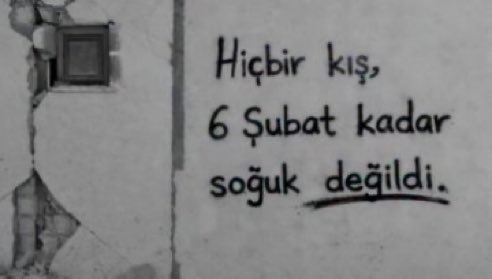 Hiçbir kış,
6 Şubat kadar
soğuk değildi.